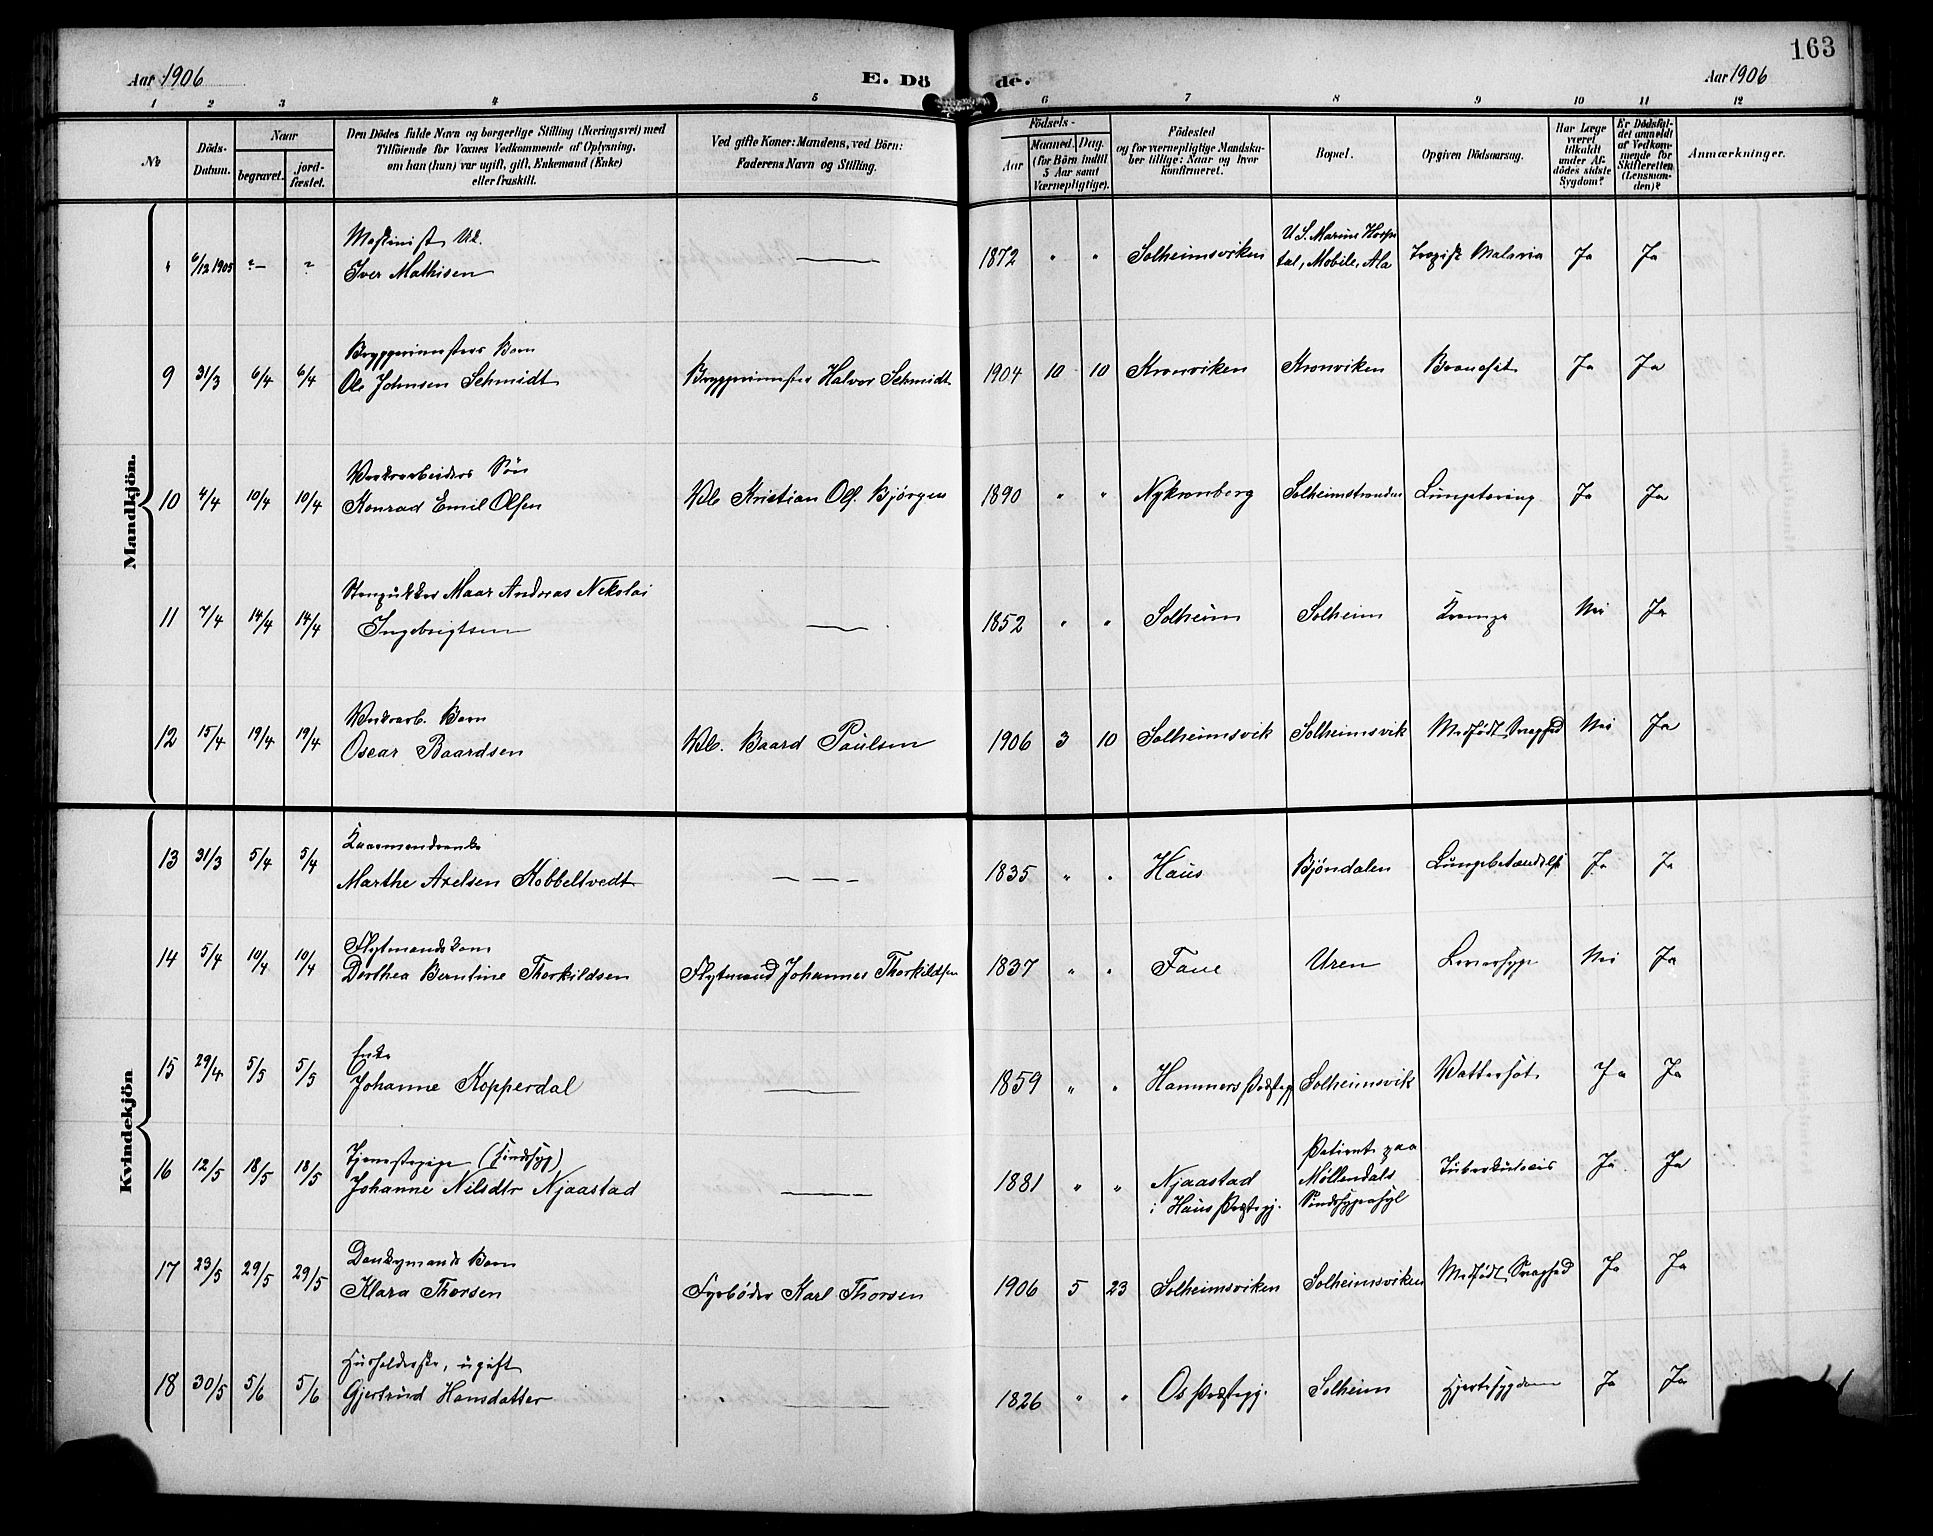 163
Aar 1906 E. Dö de. Aar 1906
1 2 3 4 5 6 7 8 9 10 11 12
No
Döds-Datum.
Naar
begravet.
jord-fæstet.
Den Dödes fulde Navn og borgerlige Stilling (Næringsvei) med
Tilföiende for Voxnes Vedkommende af Oplysning,
om han (hun) var ugift, gift, Enkemand (Enke)
eller fraskilt.
Ved gifte Koner: Mandens, ved Börn:
Faderens Navn og Stilling.
Födsels-
Aar
Maaned. Dag.
(for Börn indtil
5 Aar samt
Værnepligtige).
Födested
og for værnepligtige Mandska-
ber tillige: Naar og hvor
konfirmeret.
Bopæl.
Opgiven Dödsaarsag.
Har Læge
været
tilkaldt
under Af-
dödes sidste
Sygdom?
Er Dödsfal-
det anmeldt
af Vedkom-
mende for
Skifteretten
(Lensman-
den)?
Anmærkninger.
Mandkjön.
" 6/12 1905 "- " Maskinist Uk. Iver Mathisen — 1872 " " Solheimsviken U.S. Marine Hospi tal, Mobile, Ala Tropisk Malaria Ja Ja
9 31/3 6/4 6/4 Bryggerimesters Barn Ole Johnsen Schmidt Bryggerimester Halvor Schmidt 1904 10 10 Kronviken Kronviken Ja Ja
10 4/4 10/4 10/4 Værkarbeiders Sön Konrad Emil Olsen Vb Kristian Ols. Björgen 1890 " " Nykronborg Solheimstranden Lungetæring Ja Ja
11 7/4 14/4 14/4 Maar Andreas Nikolai Ingebrigtsen — 1852 " " Solheim Solheim Krampe Nei Ja
12 15/4 19/4 19/4 Værkarb. Barn Oscar Baardsen Vb. Baard Paulsen 1906 3 10 Solheimsvik Solheimsvik Medfödt Svaghed Nei Ja
Kvindekjön
13 31/3 5/4 5/4 Kaarmandsenke Marthe Axelsen Kobbeltvedt — — — 1835 " " Haus Bjöndalen Lungebetændelse Ja Ja
14 5/4 10/4 10/4 Flytmandskone Dorthea Berntine Thorkildsen Flytmand Johannes Thorkildsen 1837 " " Fane Uren Leversyge Nei Ja
15 29/4 5/5 5/5 Enke Johanne Kopperdal — 1859 " " Hammers Præstegj Solheimsvik Vattersot Ja Ja
16 12/5 18/5 18/5 Tjenestepige (sindssyg) Johanne Nilsdtr Njaastad — 1881 " " Njaastad i Haus Præstegj. Patient paa Möllendals Sindssygeasyl Tuberkulosis Ja Ja
17 23/5 29/5 29/5 Donkymands Barn Klara Thorsen Fyrböder Karl Thorsen 1906 5 23 Solheimsviken Solheimsviken Medfödt Svaghed Ja Ja
18 30/5 5/6 5/6 Husholderske, ugift Gjertrud Hansdatter — 1826 " " Os Præstegj. Solheim Hjertesygdom Ja Ja